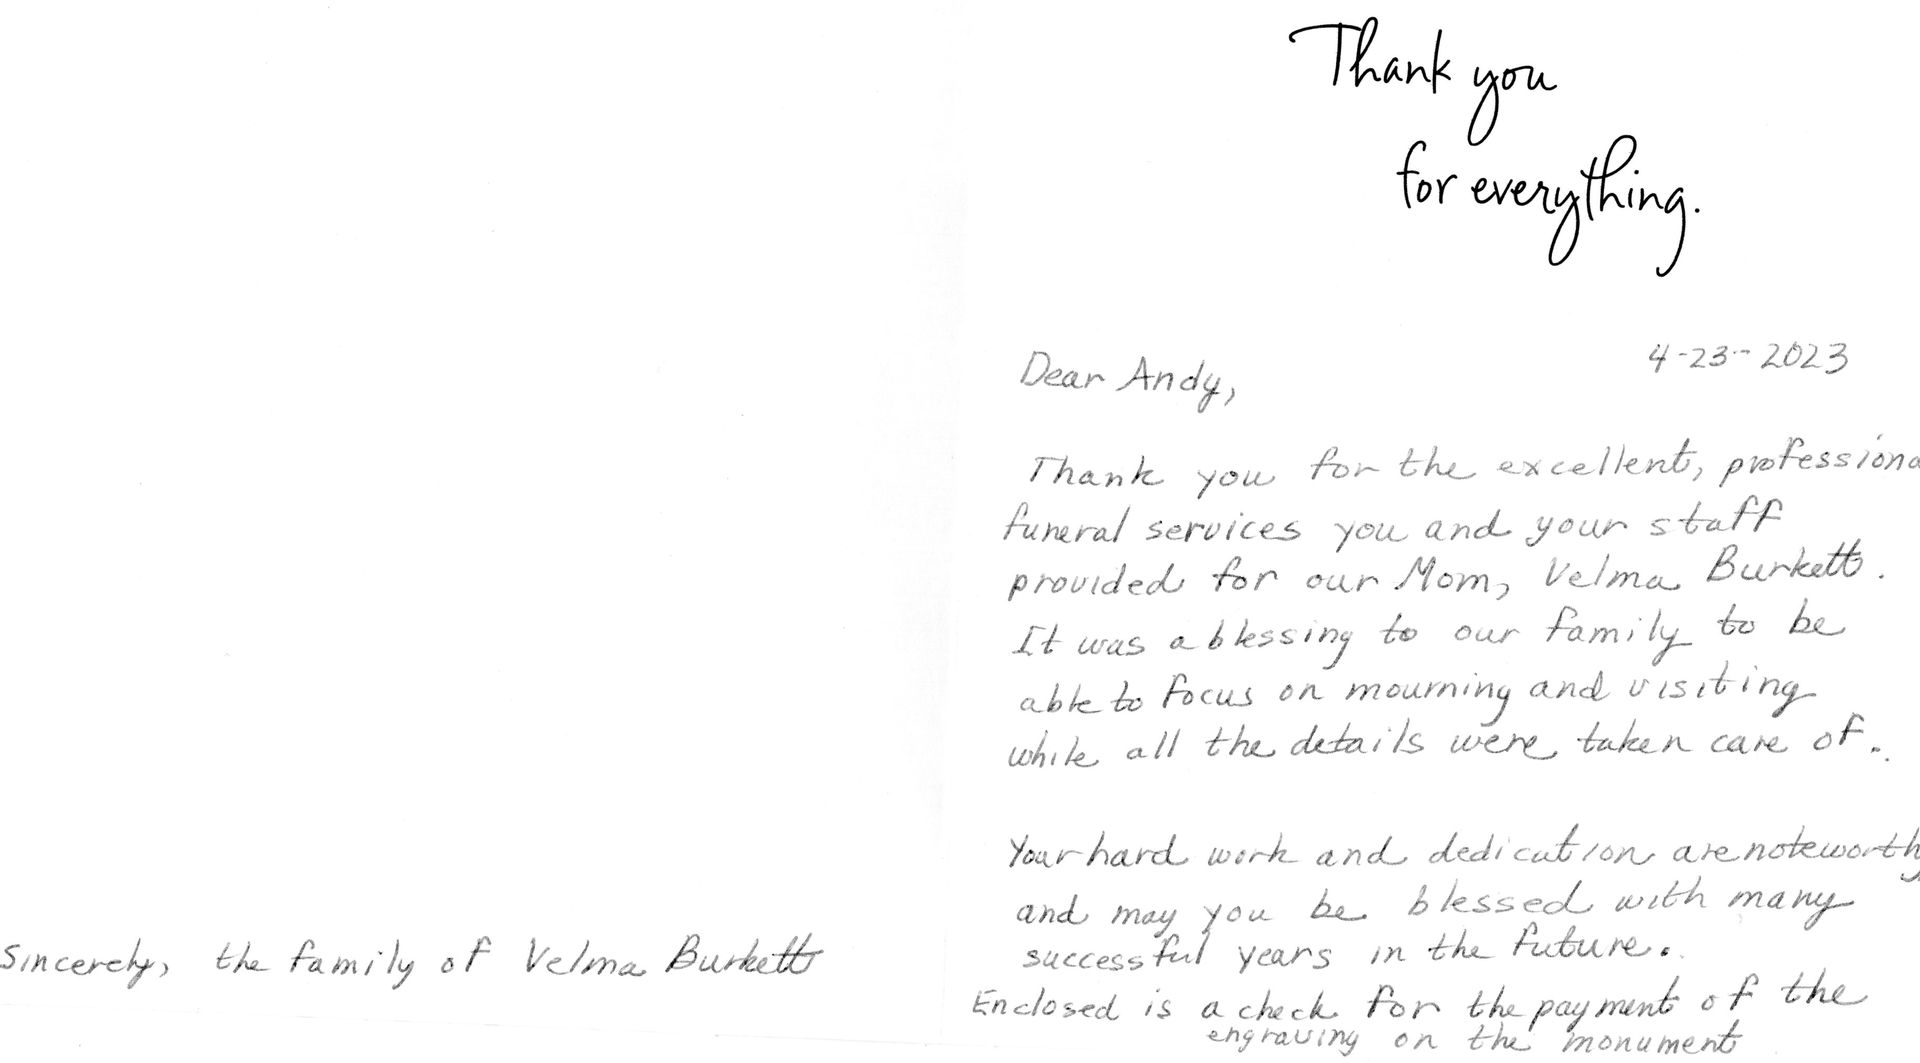 Thank you
for everything.
4-23-2023
Dear Andy,
Thank you for the excellent, professiona
funeral services you and your staff
provided for our Mom, Velma Burkett.
It was a blessing to our family to be
able to focus on mourning and visiting
while all the details were taken care of.
Your hard work and dedication are noteworthy
and may you be blessed with many
successful years in the future.
Enclosed is a check for the payment of the
engraving on the monument
Sincerely, the family of Velma Burkett